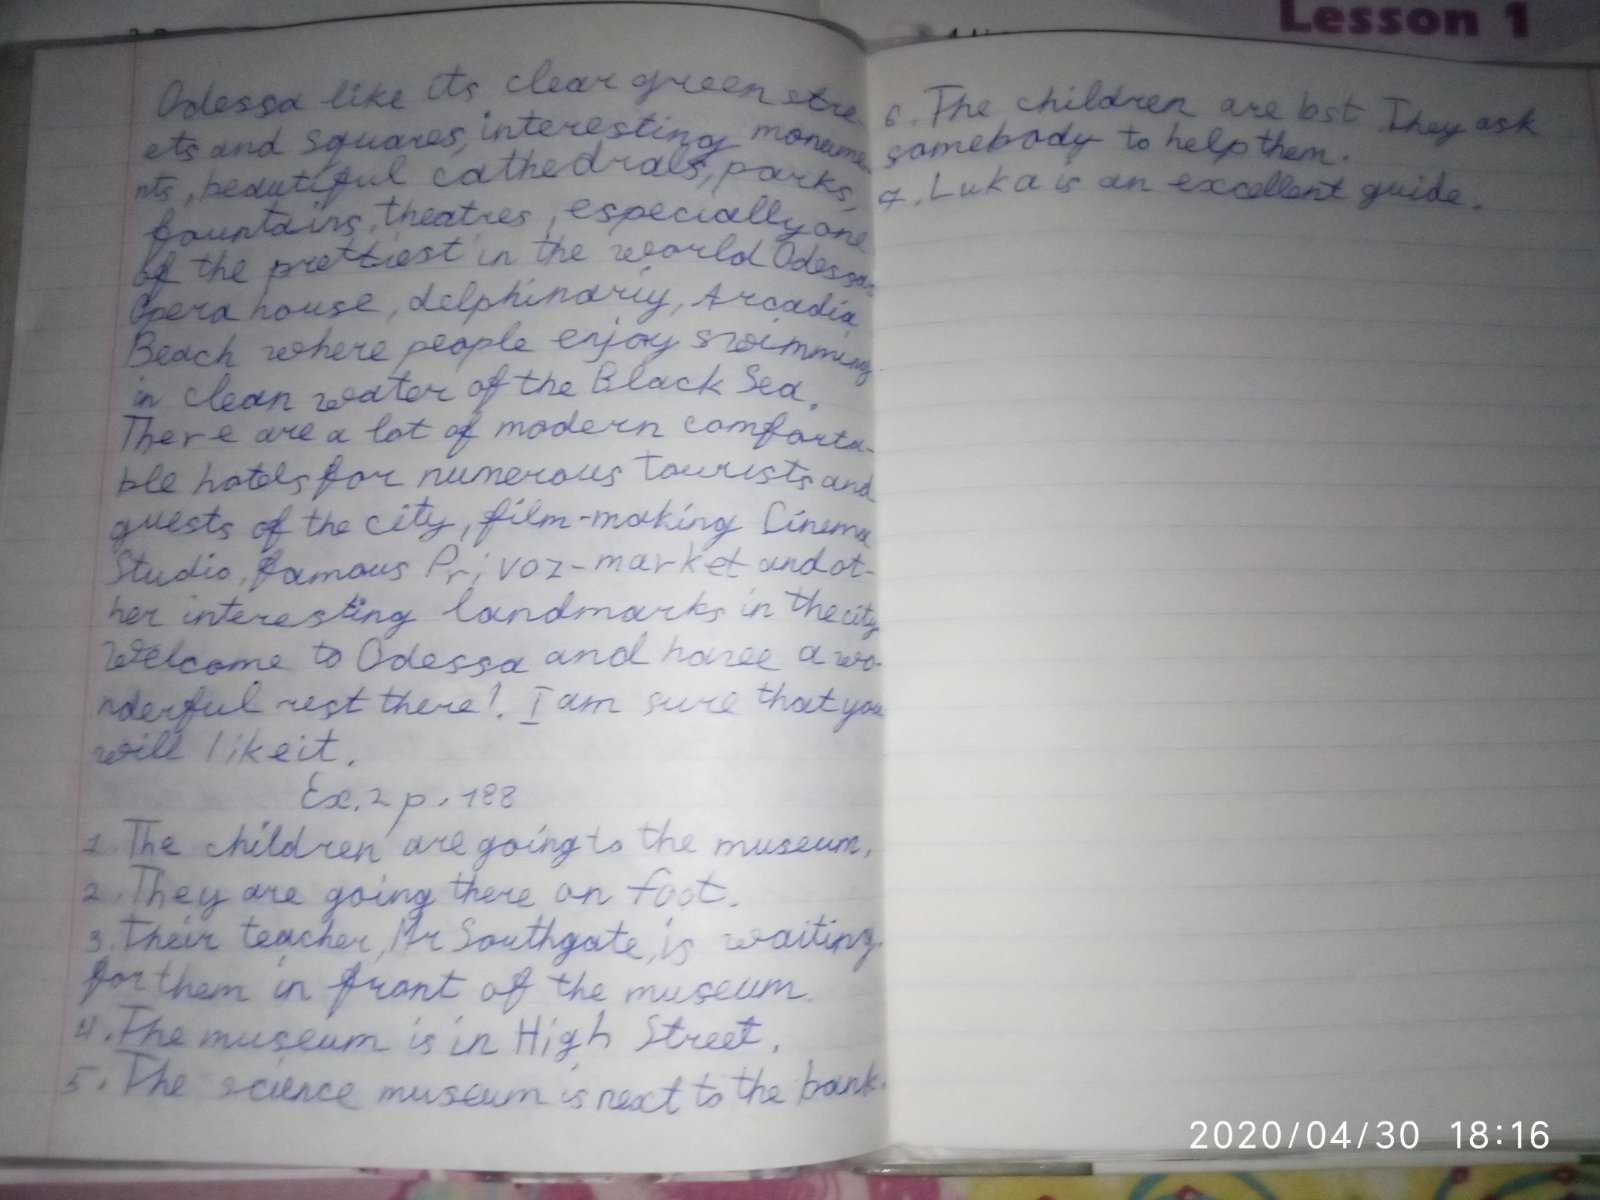 Lesson 1
Odessa like its clear green stre-
ets and squares, interesting monume
nts, beautiful cathedrals, parks,
fountains, theatres, especially one
of the prettiest in the world Odessas
Opera house, delphinariy, Arcadia
Beach where people enjoy swimming
in clean water of the Black Sea.
There are a lot of modern comforta-
ble hotels for numerous tourists and
guests of the city, film-making Cinema
Studio, famous Privoz-market and ot-
her interesting landmarks in the city
Welcome to Odessa and have a wo-
nderful rest there!. I am sure that you
will like it.
Ex. 2 p. 188
1. The children are going to the museum.
2. They are going there on foot.
3. Their teacher, Mr Southgate, is waiting
for them in front of the museum.
4. The museum is in High Street.
5. The science museum is next to the bank.
6. The children are lost. They ask
somebody to help them.
7. Luka is an excellent guide.
2020/04/30 18:16